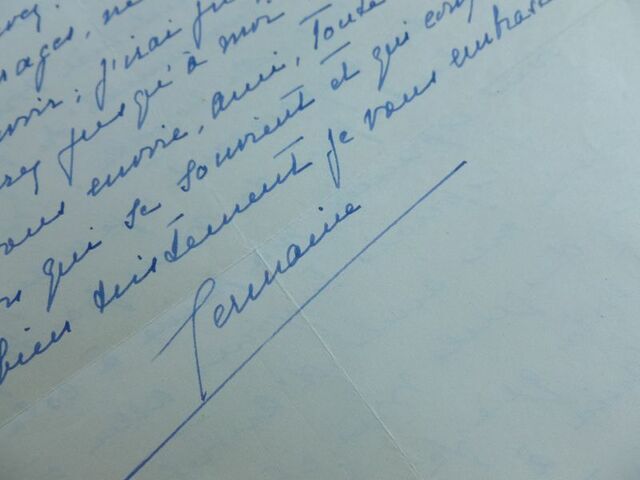 j'irai
jusqu'à moi
envoie, ami, toute
qui se souvient et qui
bien tristement je vous embrasse
Germaine